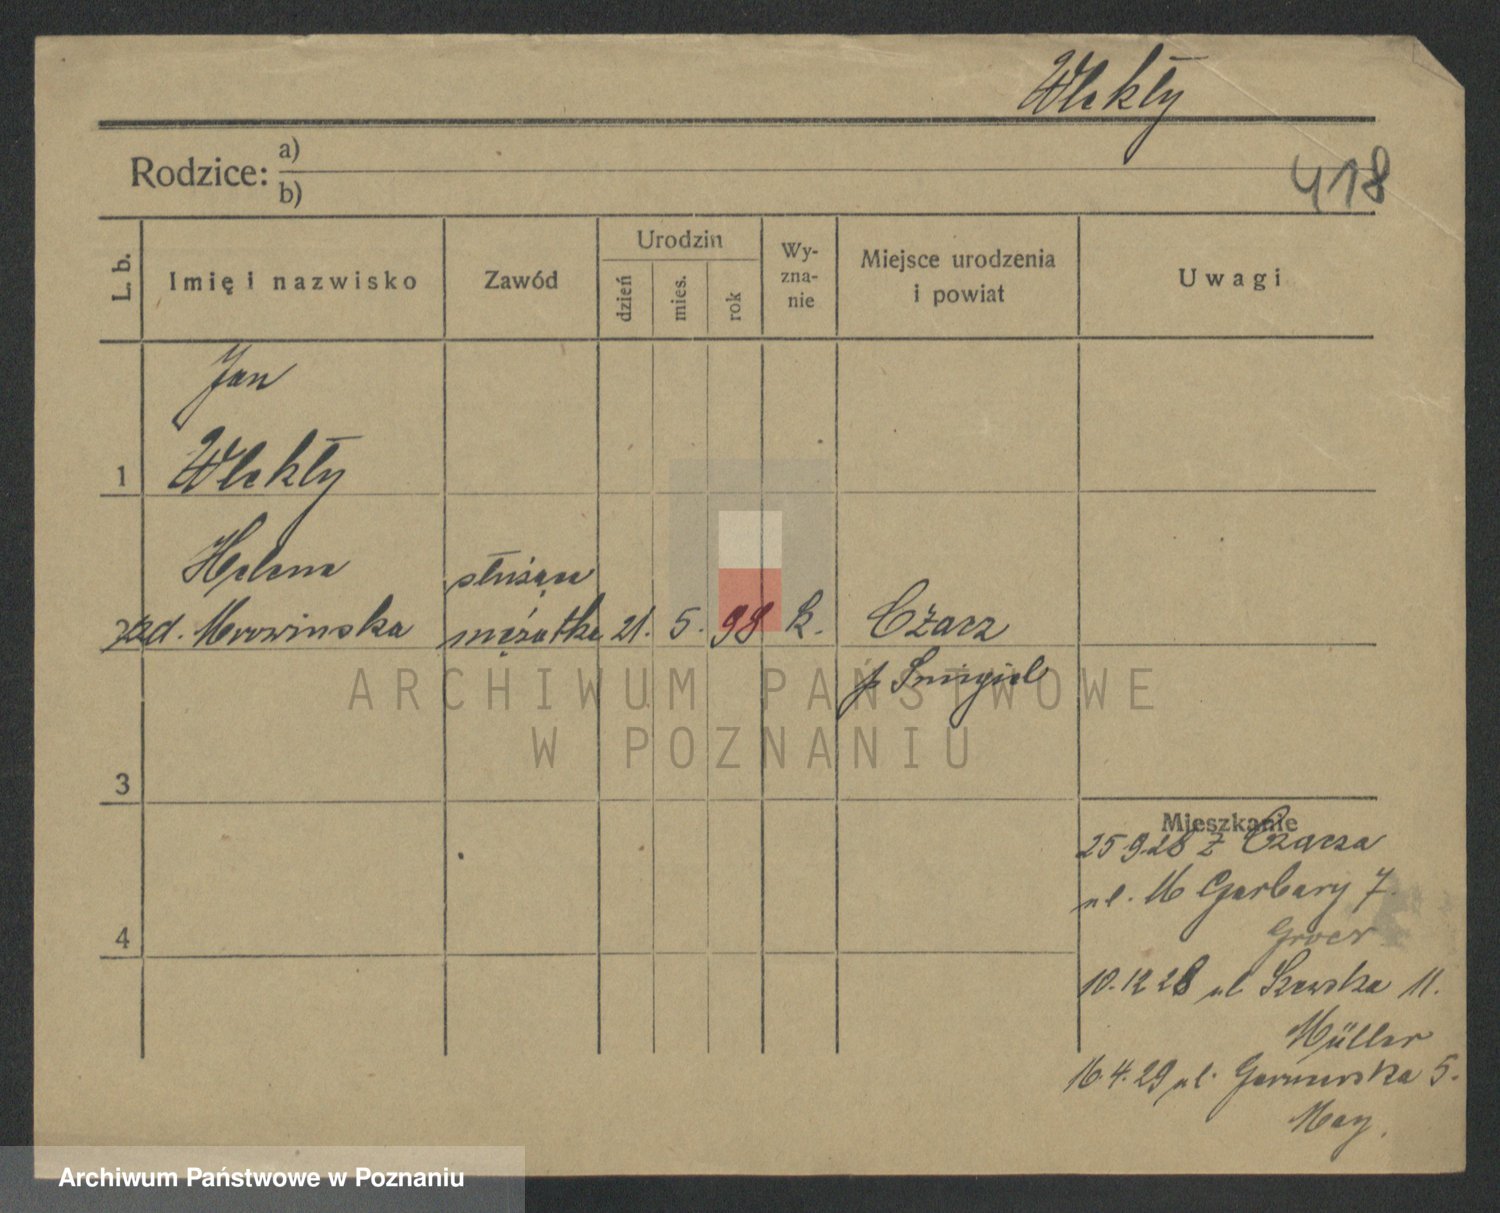 Wlekły
418
Rodzice: a)
b)
L. b.
Imię i nazwisko
Zawód
Urodzin
dzień
mies.
rok
Wy-
zna-
nie
Miejsce urodzenia
i powiat
Uwagi
Jan
1 Wlekły
Helena służąca
zd. Mrowinska mężatka 21. 5. 98 k. Czacz
p Śmigiel
ARCHIWUM PAŃSTWOWE
W POZNANIU
3
Mieszkanie
25 9.28 z Czacza
ul. M Garbary 7.
4
10.12 28 ul Szewska 11.
Müller
16.4.29 ul. 5.
May.
Archiwum Państwowe w Poznaniu